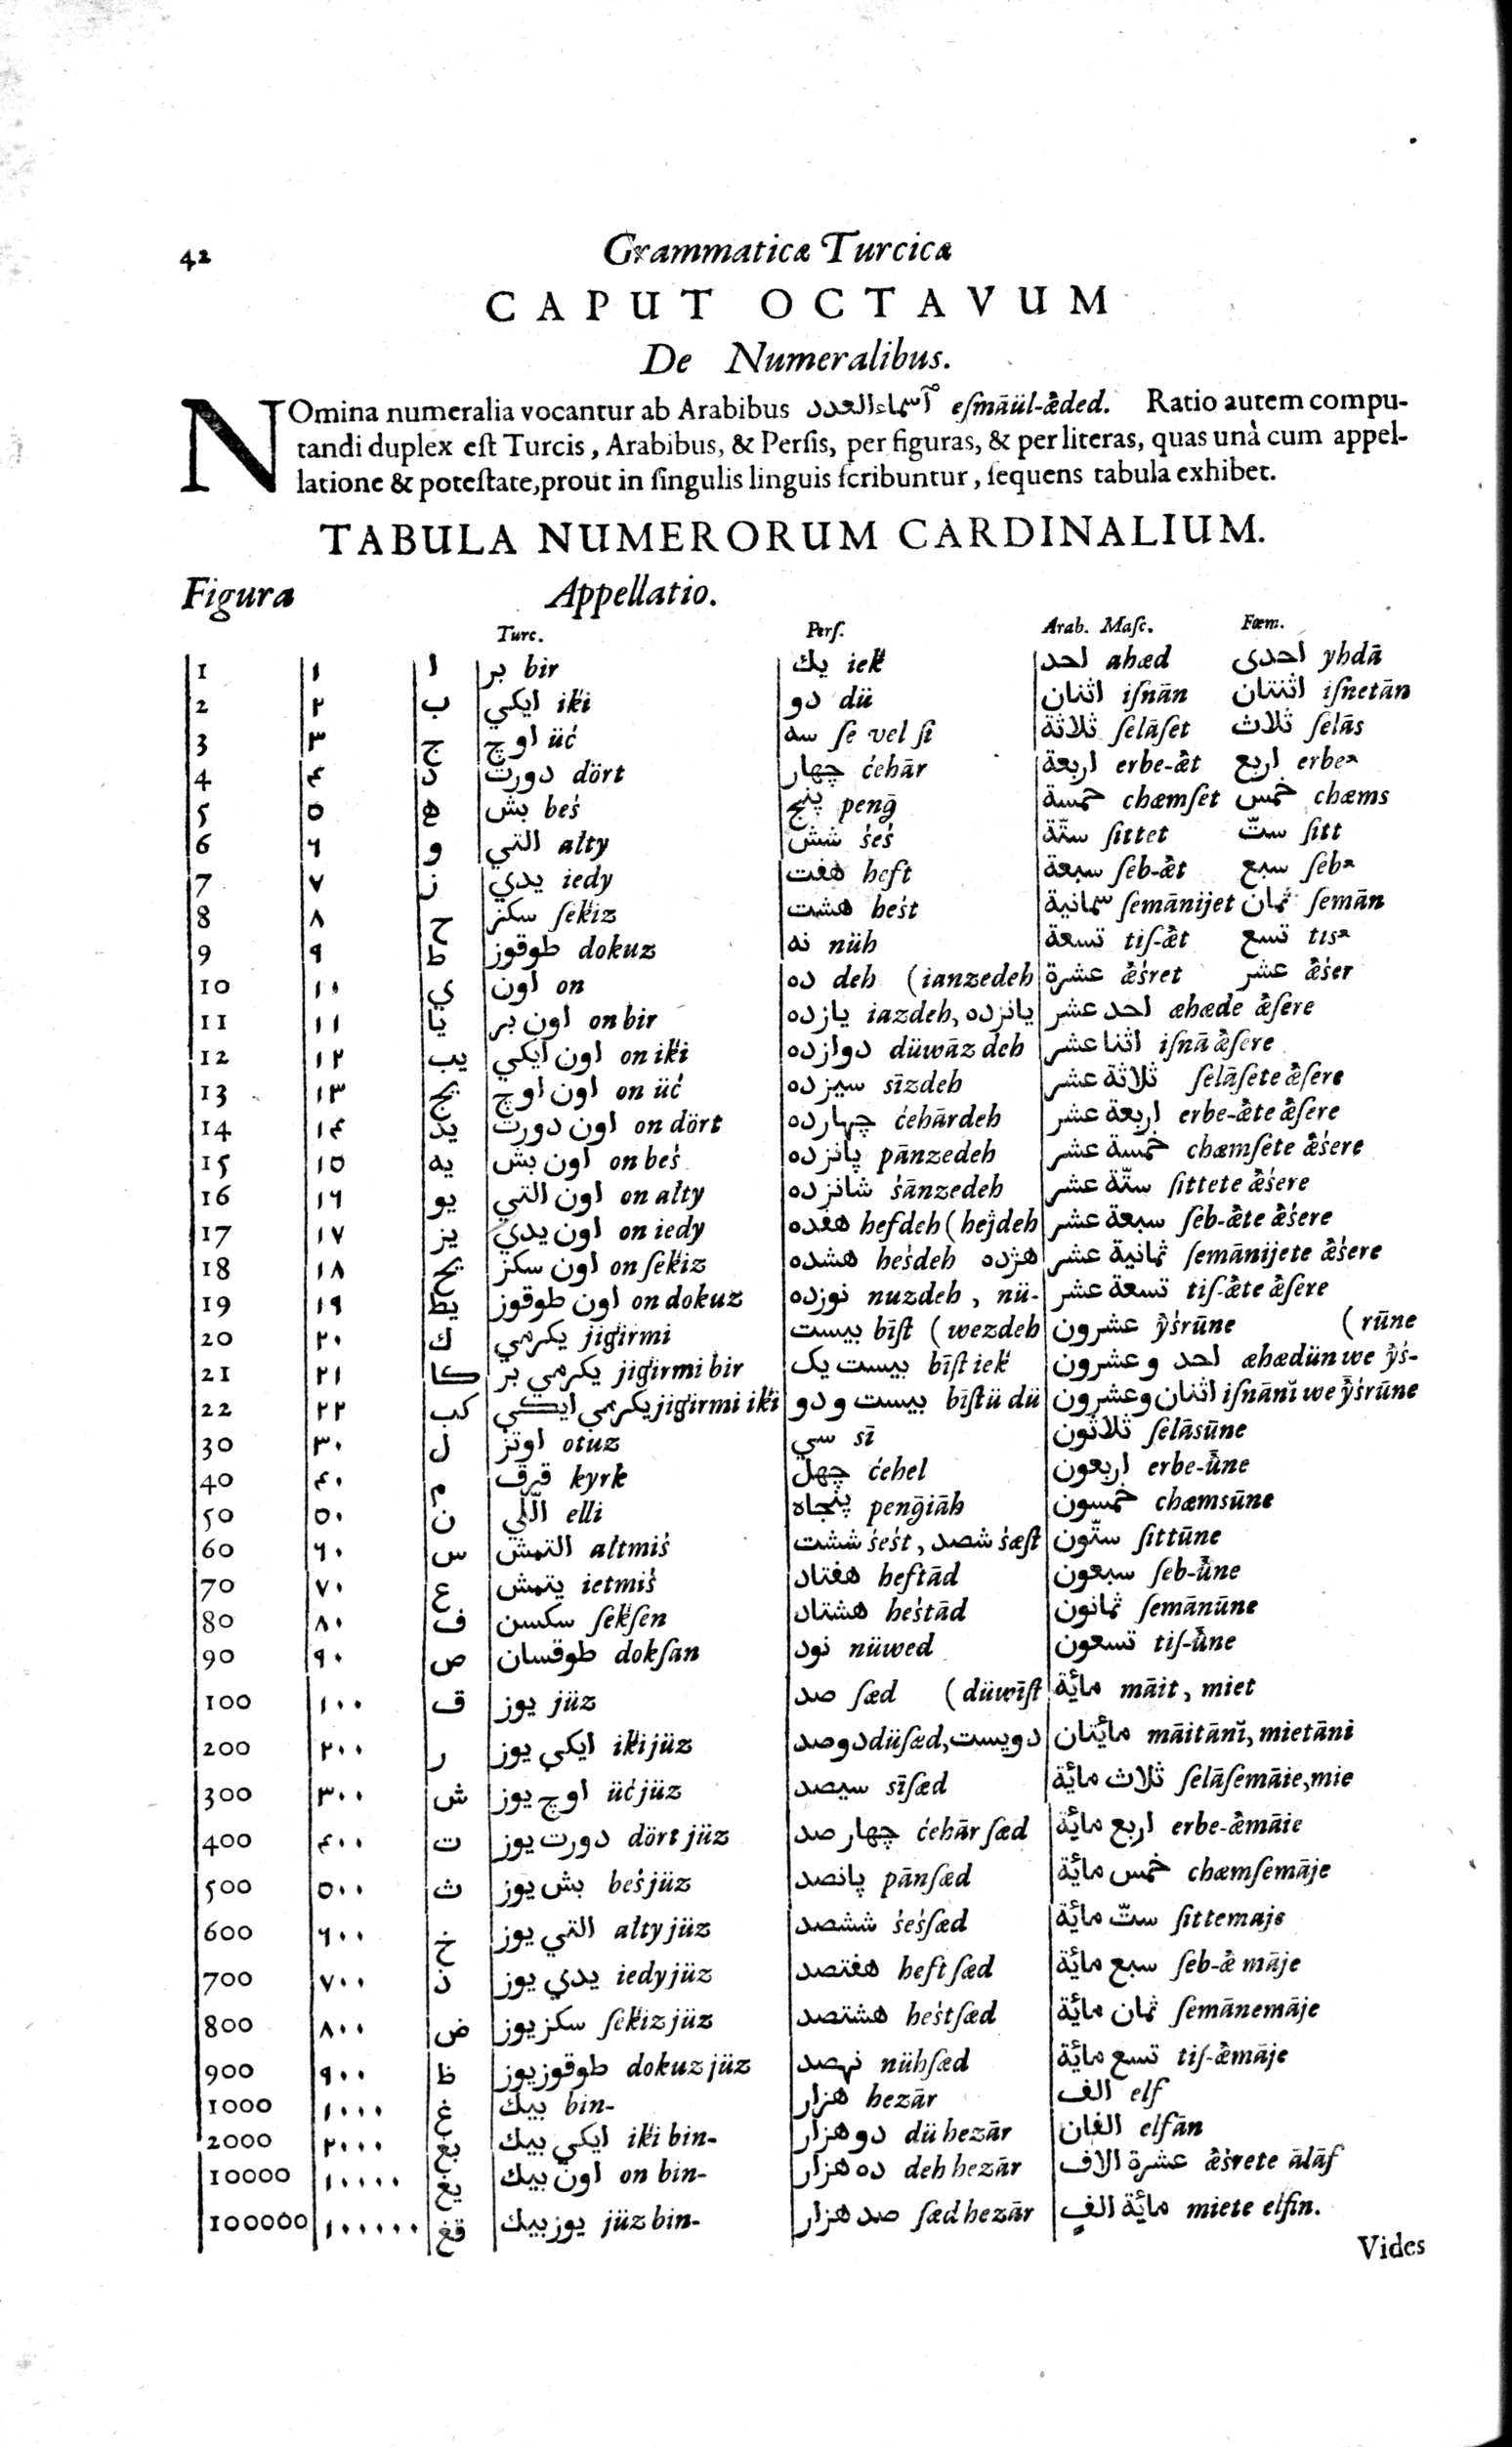 42 Grammaticæ Turcicæ
CAPUT OCTAVUM
De Numeralibus.
NOmina numeralia vocantur ab Arabibus أسماء العدد eſmāül-æded. Ratio autem compu-
tandi duplex eſt Turcis, Arabibus, & Perſis, per figuras, & per literas, quas unà cum appel-
latione & poteſtate, prout in ſingulis linguis ſcribuntur, ſequens tabula exhibet.
TABULA NUMERORUM CARDINALIUM.
Figura Appellatio.
Turc. Perſ. Arab. Maſc. Fœm.
1 ١ ا بر bir يك iek احد ahæd احدى yhdā
2 ٢ ب ايكي iki دو dü اثنان iſnān اثنتان iſnetān
3 ٣ ج اوچ üć سه ſe vel ſi ثلاثة ſelāſet ثلاث ſelās
4 ۴ د دورت dört چهار ćehār اربعة erbe-æt اربع erbeꜣ
5 ٥ ه بش beś پنج penḡ خمسة chæmſet خمس chæms
6 ٦ و التي alty شش śeś ستّة ſittet ستّ ſitt
7 ٧ ز يدي iedy هفت heft سبعة ſeb-æt سبع ſebꜣ
8 ٨ ح سكز ſekiz هشت heśt ثمانية ſemānijet ثمان ſemān
9 ٩ ط طوقوز dokuz نه nüh تسعة tiſ-æt تسع tisꜣ
10 ١٠ ي اون on ده deh (ianzedeh عشرة æśret عشر æśer
11 ١١ يا اون بر on bir يازده iazdeh, يانزده احد عشر æhæde æſere
12 ١٢ يب اون ايكي on iki دوازده düwāzdeh اثنا عشر iſnā æſere
13 ١٣ يج اون اوچ on üć سيزده sīzdeh ثلاثة عشر ſelāſete æſere
14 ١۴ يد اون دورت on dört چهارده ćehārdeh اربعة عشر erbe-æte æſere
15 ١٥ يه اون بش on beś پانزده pānzedeh خمسة عشر chæmſete æśere
16 ١٦ يو اون التي on alty شانزده śānzedeh ستّة عشر ſittete æśere
17 ١٧ يز اون يدي on iedy هفده hefdeh (hejdeh سبعة عشر ſeb-æte æśere
18 ١٨ يح اون سكز on ſekiz هشده heśdeh هژده ثمانية عشر ſemānijete æśere
19 ١٩ يط اون طوقوز on dokuz نوزده nuzdeh, nü- تسعة عشر tiſ-æte æſere
20 ٢٠ ك يكرمي jigirmi بيست bīſt (wezdeh عشرون ýśrūne (rūne
21 ٢١ كا يكرمي بر jigirmi bir بيست يک bīſt iek احد وعشرون æhædün we ýś-
22 ٢٢ كب يكرمي ايكي jigirmi iki بيست و دو bīſt ü dü اثنان وعشرون iſnānĭ we ýśrūne
30 ٣٠ ل اوتز otuz سي sī ثلاثون ſelāsūne
40 ۴٠ م قرق kyrk چهل ćehel اربعون erbe-ūne
50 ٥٠ ن اللّي elli پنجاه penḡiāh خمسون chæmsūne
60 ٦٠ س التمش altmiś ششت śeśt, شصد śæſt ستّون ſittūne
70 ٧٠ ع يتمش ietmiś هفتاد heftād سبعون ſeb-ūne
80 ٨٠ ف سكسن ſekſen هشتاد heśtād ثمانون ſemānūne
90 ٩٠ ص طوقسان dokſan نود nüwed تسعون tiſ-ūne
100 ١٠٠ ق يوز jüz صد ſæd (düwīſt مائة māit, miet
200 ٢٠٠ ر ايكي يوز iki jüz دوصد düſæd, دويست مائتان māitānĭ, mietāni
300 ٣٠٠ ش اوچ يوز üć jüz سيصد sīſæd ثلاث مائة ſelāſemāie, mie
400 ۴٠٠ ت دورت يوز dört jüz چهار صد ćehār ſæd اربع مائة erbe-æmāie
500 ٥٠٠ ث بش يوز beś jüz پانصد pānſæd خمس مائة chæmſemāje
600 ٦٠٠ خ التي يوز alty jüz ششصد śeśſæd ستّ مائة ſittemaje
700 ٧٠٠ ذ يدي يوز iedy jüz هفتصد heft ſæd سبع مائة ſeb-æ māje
800 ٨٠٠ ض سكز يوز ſekiz jüz هشتصد heśtſæd ثمان مائة ſemānemāje
900 ٩٠٠ ظ طوقوز يوز dokuz jüz نهصد nühſæd تسع مائة tiſ-æmāje
1000 ١٠٠٠ غ بيك bin- هزار hezār الف elf
2000 ٢٠٠٠ بغ ايكي بيك iki bin- دو هزار dü hezār الفان elfān
10000 ١٠٠٠٠ يغ اون بيك on bin- ده هزار deh hezār عشرة الاف æśrete ālāf
100000 ١٠٠٠٠٠ قغ يوز بيك jüz bin- صد هزار ſæd hezār مائة الفٍ miete elfin.
Vides